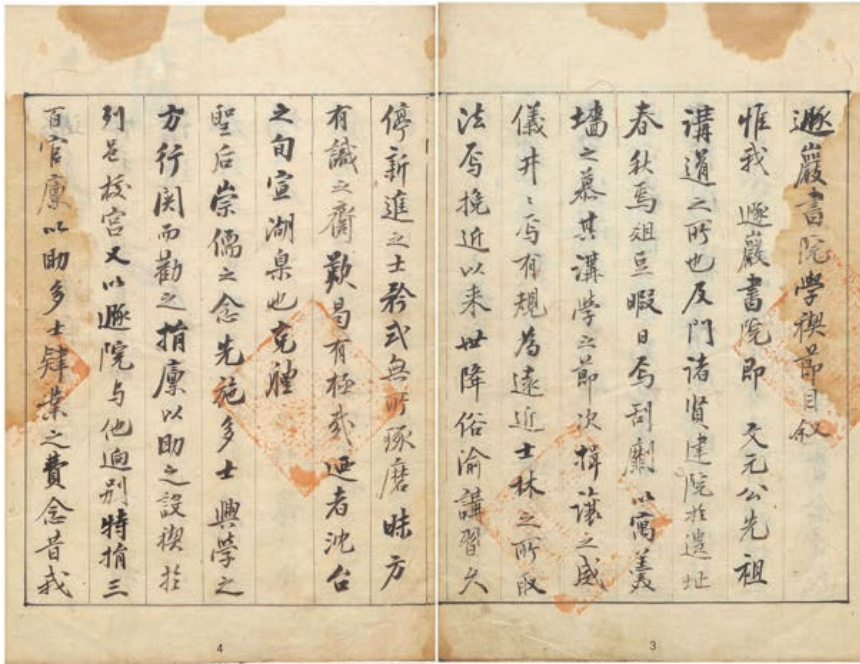 遯巖書院學禊節目叙
惟我 遯巖書院即 文元公先祖
講道之所也及門諸賢建院於遺址
春秋焉俎豆暇日焉刮劘以寓羹
墻之慕其講學之節次揖讓之威
儀井〻焉有規為遠近士林之所取
法焉挽近以来世降俗渝講習久
停新進之士矜式無所琢磨昧方
有識之齎歎曷有極哉迺者沈台
之旬宣湖臬也克軆
聖后崇儒之念先施多士興學之
方行関而勸之捐廩以助之設禊於
列邑校宫又以遯院与他逈别特捐三
百官廩以助多士肄業之費念昔我
3
4